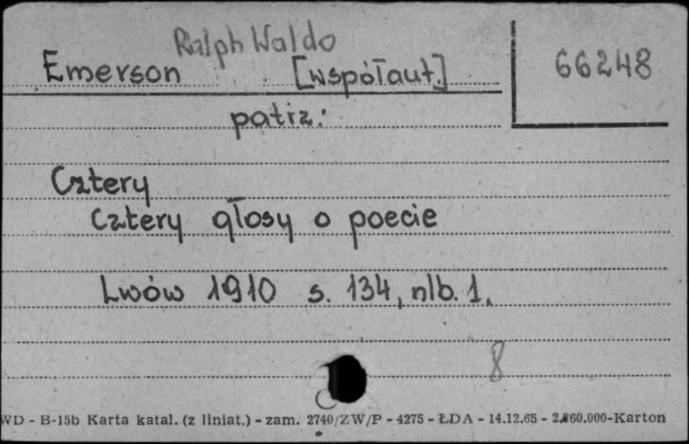 Ralph Waldo
Emerson [współaut.] 66248
patrz:
Cztery
Cztery głosy o poecie
Lwów 1910 s. 134, nlb. 1.
8
WD - B-15b Karta katal. (z liniat.) - zam. 2740/ZW/P - 4275 - ŁDA - 14.12.65 - 2.860.000-Karton